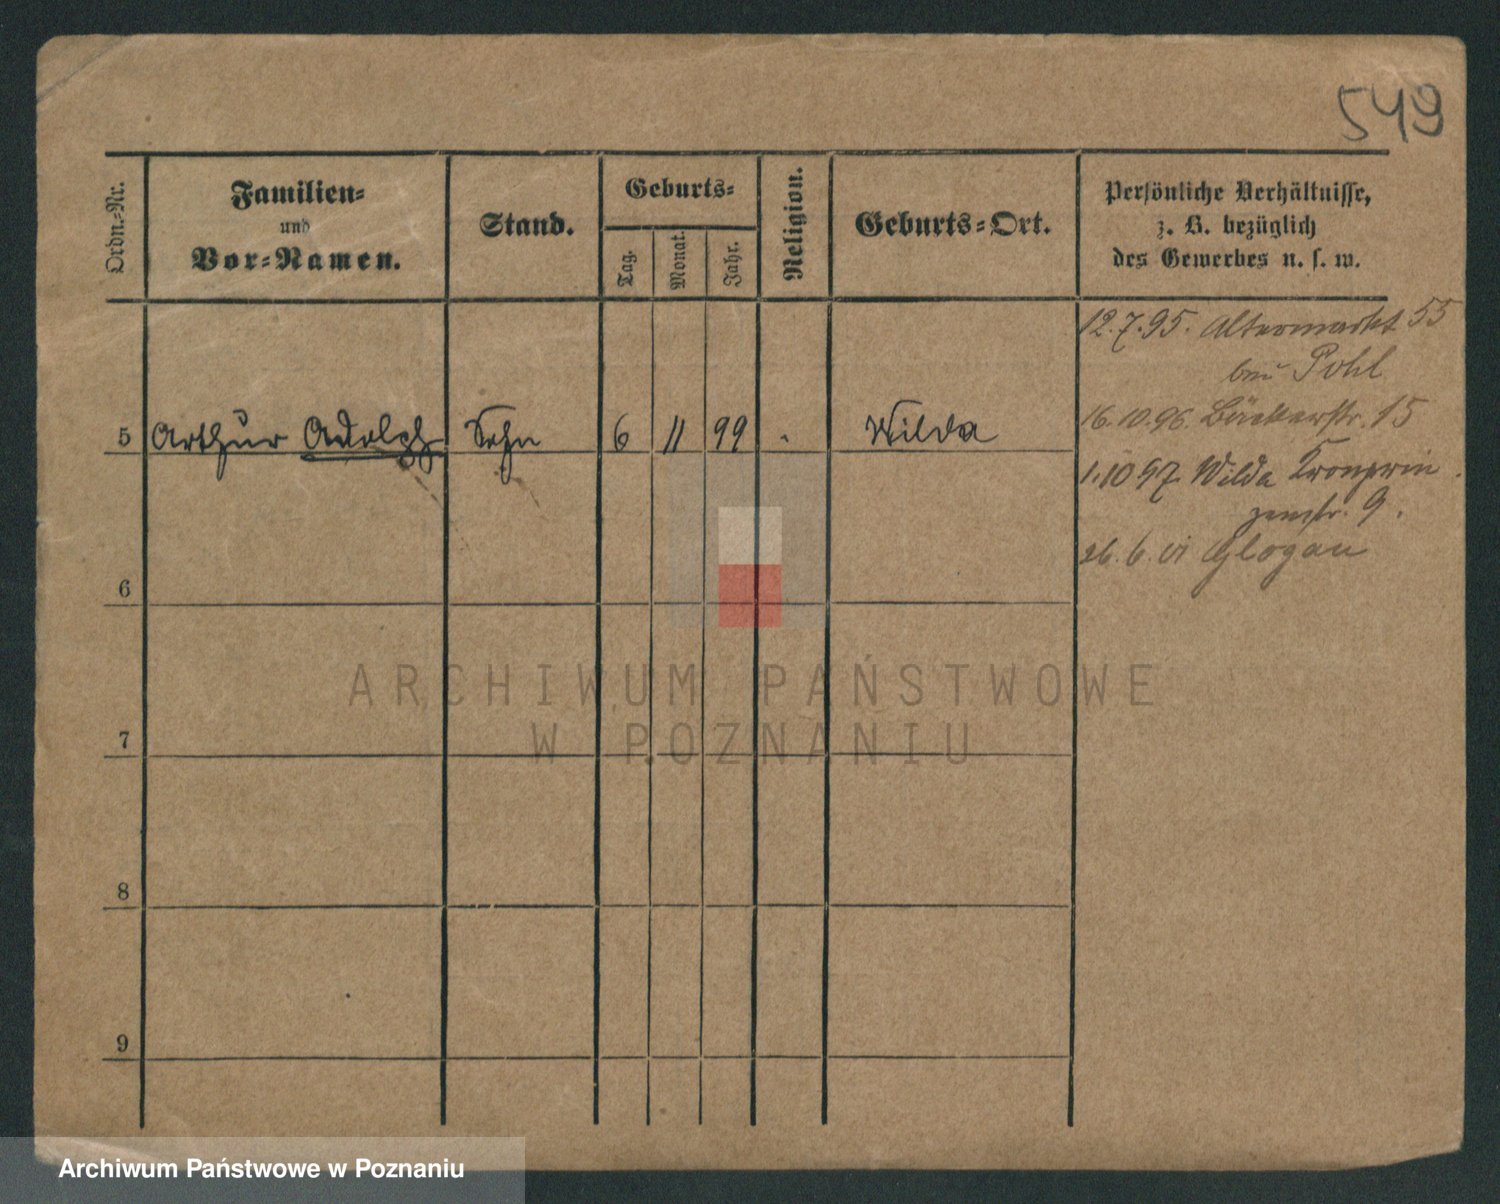 549
Ordn.-Nr.
Familien-
und
Vor-Namen.
Stand.
Geburts-
Tag.
Monat.
Jahr.
Religion.
Geburts-Ort.
Persönliche Verhältnisse,
z. B. bezüglich
des Gewerbes u. s. w.
12.7.95. Altermarkt 55
bei Pohl
5 Arthur Adolph Sohn 6 11 99 . Wilda
16.10.96. Bäckerstr. 15
1.10 97. Wilda Kronprin
zenstr. 9.
26.6.01 Glogau
6
7
8
9
ARCHIWUM PAŃSTWOWE
W POZNANIU
Archiwum Państwowe w Poznaniu